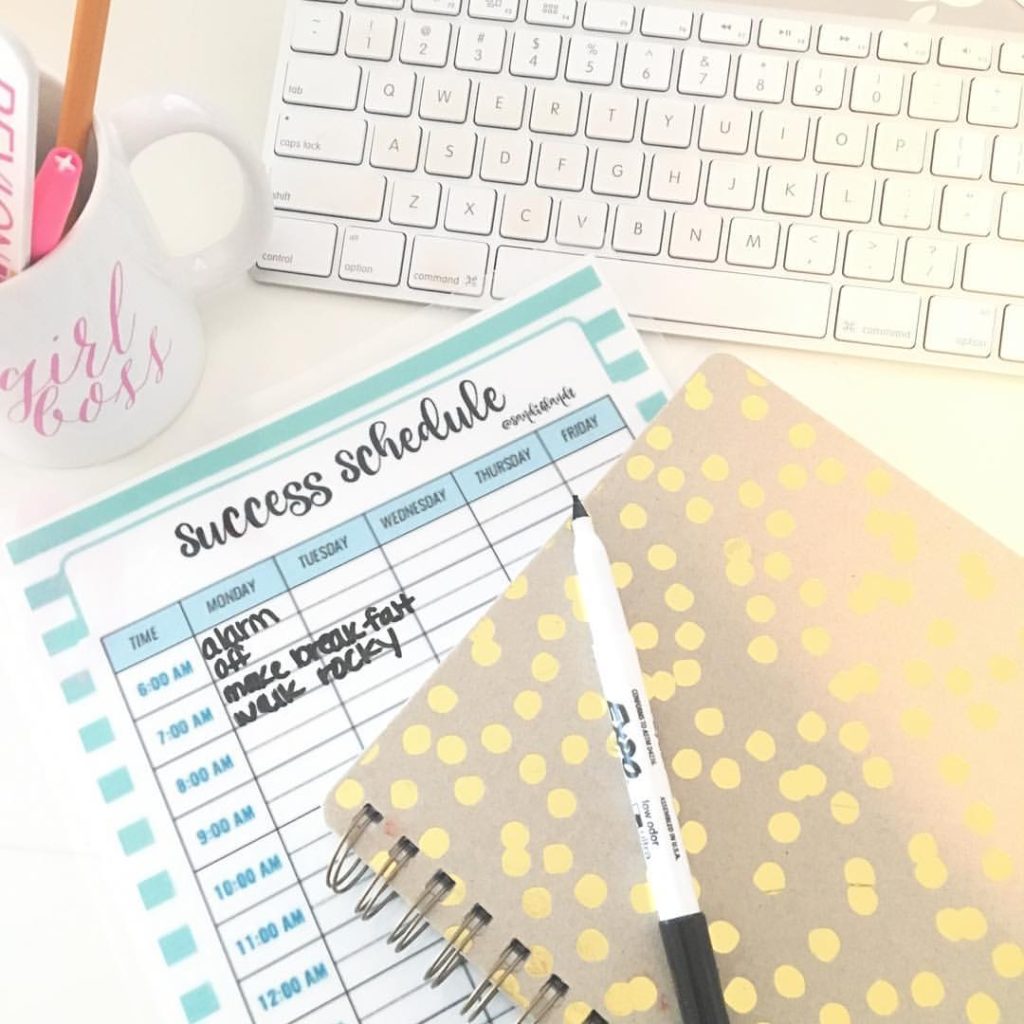 ~ ! 1 @ 2 # 3 $ 4 % 5 ^ 6 & 7 * 8 ( 9 ) 0
tab Q W E R T Y U I O P
caps lock A S D F G H J K L
shift Z X C V B N M < , > . ? /
control alt option command ⌘ ⌘ command alt option
REVLON
girl
boss
success schedule
@sandiblande
TIME MONDAY TUESDAY WEDNESDAY THURSDAY FRIDAY
6:00 AM alarm
off
make break-fast
7:00 AM walk rocky
8:00 AM
9:00 AM
10:00 AM
11:00 AM
12:00 AM
EXPO
low odor
ultra
CONFORMS TO ASTM D4236
ASSEMBLED IN U.S.A.